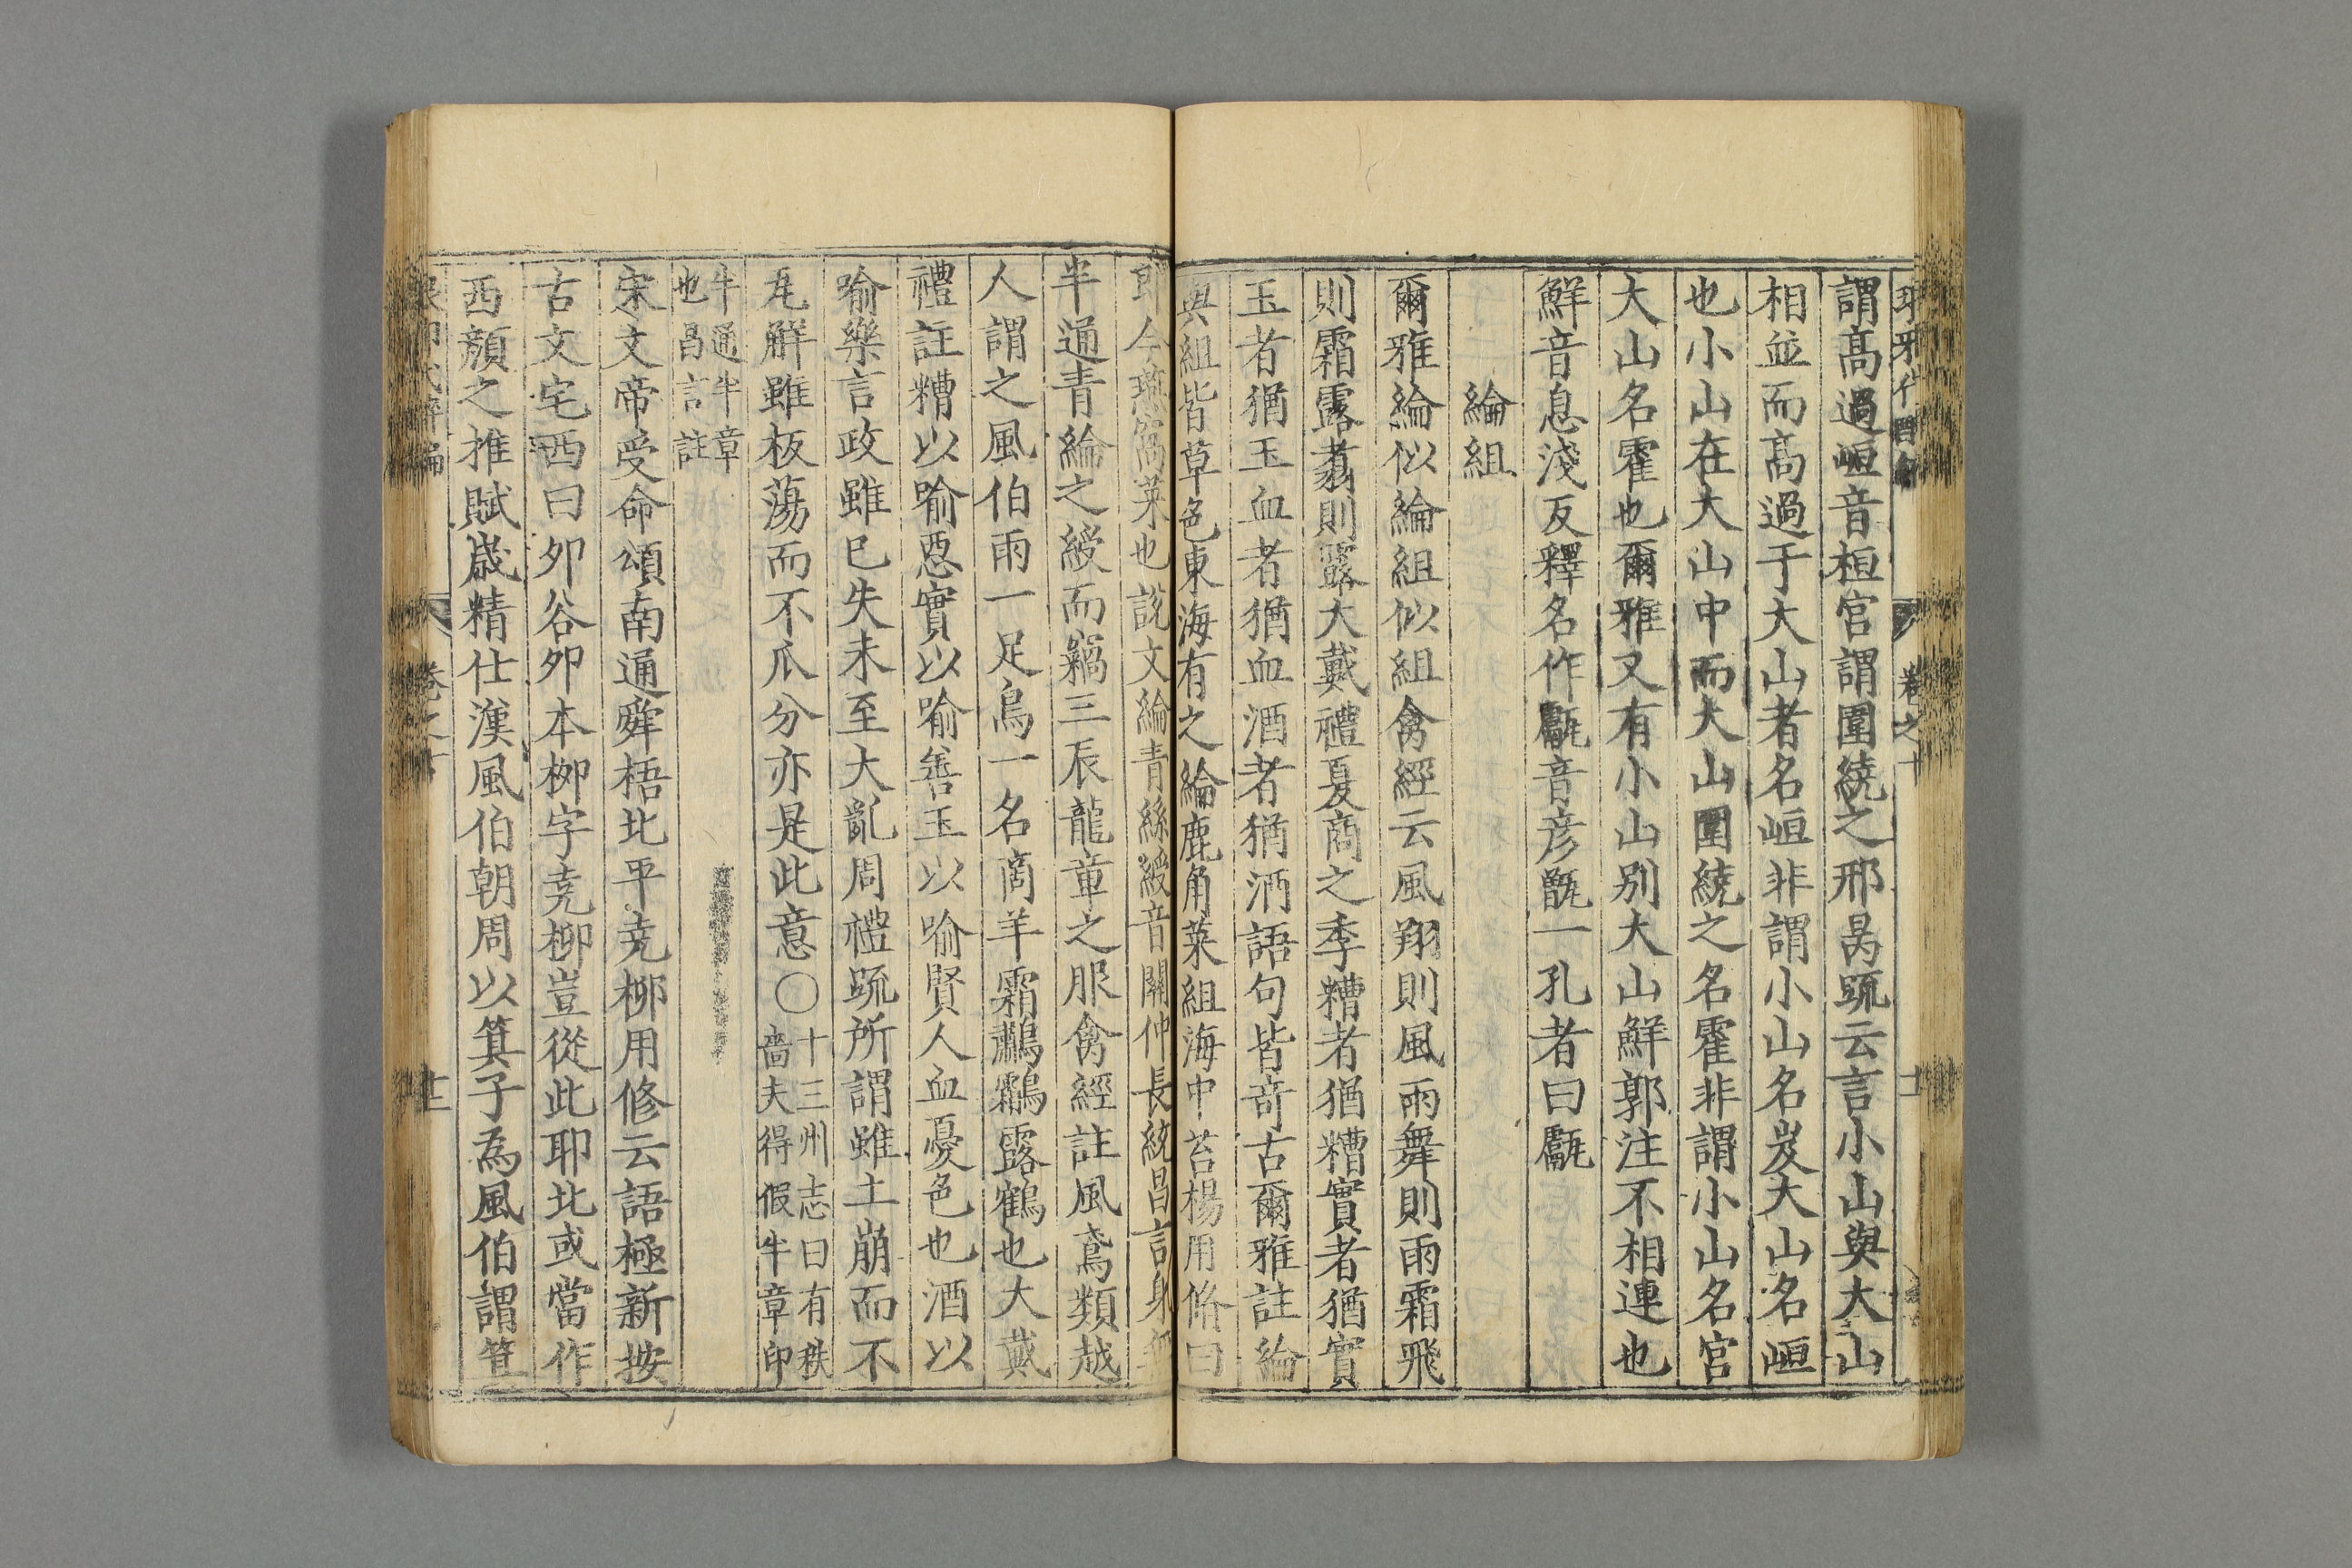 謂高過峘音桓宫謂圍繞之邢昺䟽云言小山與大山
相並而高過于大山者名峘非謂小山名岌大山名峘
也小山在大山中而大山圍繞之名霍非謂小山名宫
大山名霍也爾雅又有小山別大山鮮郭注不相連也
鮮音息淺反釋名作甗音彦甑一孔者曰甗
綸組
爾雅綸似綸組似組禽經云風翔則風雨舞則雨霜飛
則霜露翥則露大戴禮夏商之季糟者猶糟實者猶實
玉者猶玉血者猶血酒者猶酒語句皆奇古爾雅註綸
與組皆草色東海有之綸鹿角菜組海中苔楊用脩曰
即今燕窩菜也説文綸青絲綬音關仲長統昌言身無
半通青綸之綬而竊三辰龍章之服禽經註風鳶類越
人謂之風伯雨一足鳥一名商羊霜鷫鸘露鶴也大戴
禮註糟以喻惡實以喻善玉以喻賢人血憂色也酒以
喻樂言政雖已失未至大亂周禮䟽所謂雖土崩而不
瓦解雖板蕩而不瓜分亦是此意〇十三州志曰有秩
嗇夫得假半章印
半通半章
也昌言註
宋文帝受命頌南通舜梧北平堯桺用修云語極新按
古文宅西曰夘谷夘本桺字堯柳豈從此耶北或當作
西顔之推賦嵗精仕漢風伯朝周以箕子為風伯謂箕